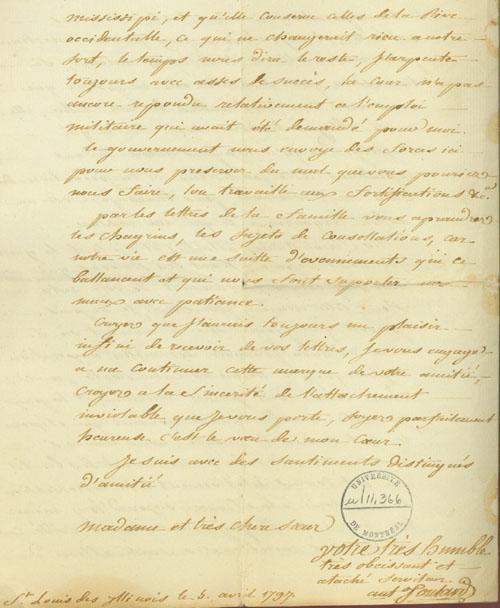 mississipi, et qu'elle conserve celles de la Rive
occidentalle, ce qui ne changerait rien a notre
sort, le temps nous dira le reste, j'arpente
toujours avec assés de succès, la cour n'a pas
ancore répondu relativement a l'emploi
militaire qui avait été demandé pour moi.
le gouvernement nous envoye des forces ici
pour nous preserver du mal que vous pouriez
nous faire, l'on travaille aux fortifications &c.
par les lettres de la famille vous aprandrez
les chagrins, les sujets de consollations, car
notre vie est une suitte d'evennements qui ce
ballancent et qui nous font suporter nos
maux avec patiance.
Croyez que j'aurais toujours un plaisir
infini de recevoir de vos lettres, je vous engage
a me continuer cette marque de votre amitié,
croyez a la sincerité de l'attachement
inviolable que je vous porte, soyez parfaitement
heureuse c'est le vœu de mon Cœur.
Je suis avec des santiments distingués
d'amitié
UNIVERSITÉ
u/11,366
DE MONTRÉAL
madame et très chere sœur
votre très humble
très obeissant et
ataché serviteur
ant Soulard
St Louis des Ilinois le 3. avril 1797.